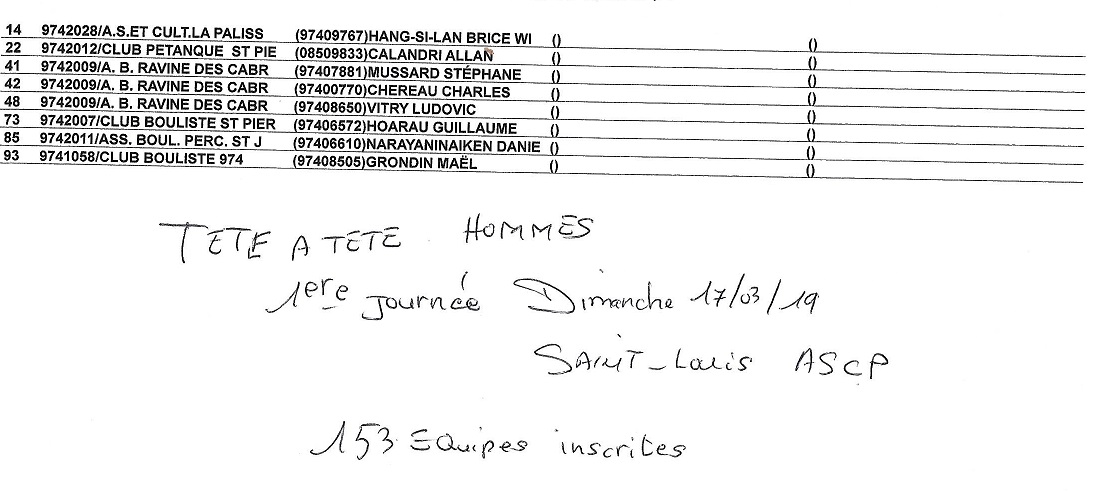 14 9742028/A.S.ET CULT.LA PALISS (97409767)HANG-SI-LAN BRICE WI () ()
22 9742012/CLUB PETANQUE ST PIE (08509833)CALANDRI ALLAN () ()
41 9742009/A. B. RAVINE DES CABR (97407881)MUSSARD STÉPHANE () ()
42 9742009/A. B. RAVINE DES CABR (97400770)CHEREAU CHARLES () ()
48 9742009/A. B. RAVINE DES CABR (97408650)VITRY LUDOVIC () ()
73 9742007/CLUB BOULISTE ST PIER (97406572)HOARAU GUILLAUME () ()
85 9742011/ASS. BOUL. PERC. ST J (97406610)NARAYANINAIKEN DANIE () ()
93 9741058/CLUB BOULISTE 974 (97408505)GRONDIN MAËL () ()
TETE A TETE HOMMES
1ere Journée Dimanche 17/03/19
SAINT-Louis ASCP
153 Equipes inscrites